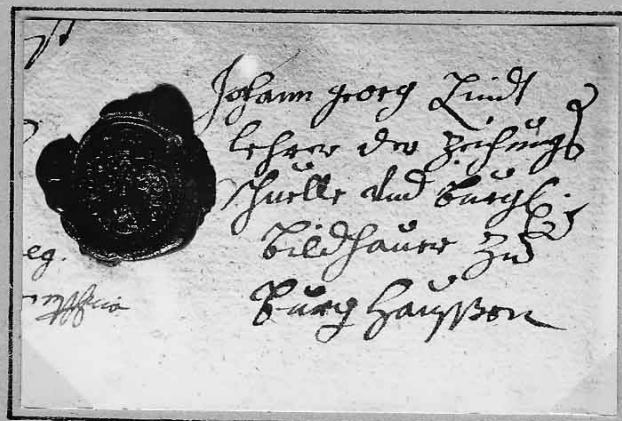 Johann georg Lindt
lehrer der zeichungs
schuelle und burgl:
bildhauer zu
burg haussen
eg.